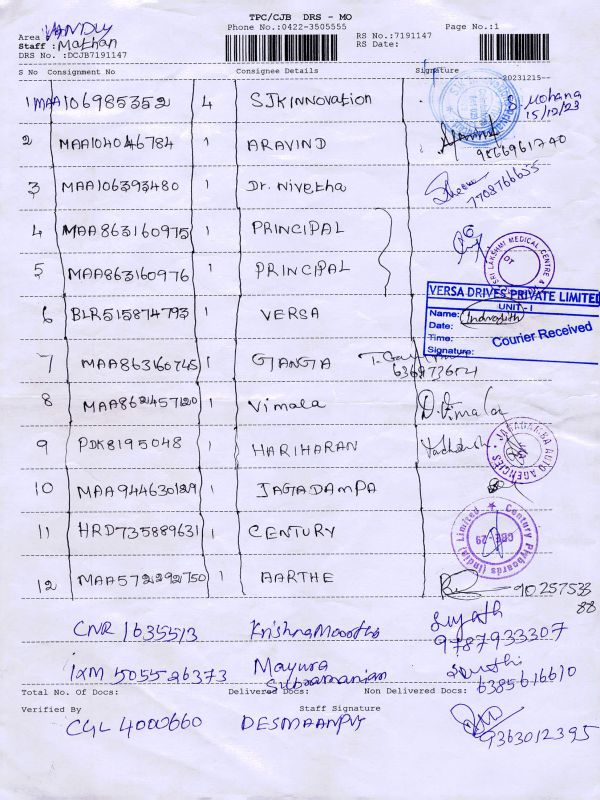 TPC/CJB DRS - MO
Phone No.:0422-3505555
Page No.:1
RS No.:7191147
RS Date:
Area : VANDLY
Staff : Mathan
DRS No. :DCJB7191147
S No Consignment No Consignee Details Signature
20231215
1 MAA106985352 4 SJKINNOVation S. Mohana 15/12/23
2 MAA104046784 1 ARAVIND 9566961740
3 MAA106393480 1 Dr. Nivetha 7708766635
4 MAA863160975 1 PRINCIPAL
5 MAA863160976 1 PRINCIPAL
SRI LAKSHMI MEDICAL CENTRE &
6 BLR515874793 1 VERSA
VERSA DRIVES PRIVATE LIMITED
UNIT - I
Name: Indrajith
Date:
Time:
Courier Received
Signature:
7 MAA863160745 1 GANGA
8 MAA862457120 1 Vimala D. Vimala
9 PDK8195048 1 HARIHARAN
JAGADAMBA AUTO AGENCIES
10 MAA944630129 1 JAGADAMPA
11 HRD735889631 1 CENTURY
Century Plyboards (India) Limited
CBE-29
12 MAA572292750 1 AARTHE 9025753388
CNR 1635513 Krishnamoorthy Sujath 9787933307
IXM 505526373 Mayura Subramaniam 6385616610
Total No. Of Docs: Delivered Docs: Non Delivered Docs:
Verified By Staff Signature
CGL 4000660 DESMAANPLY 9363012395